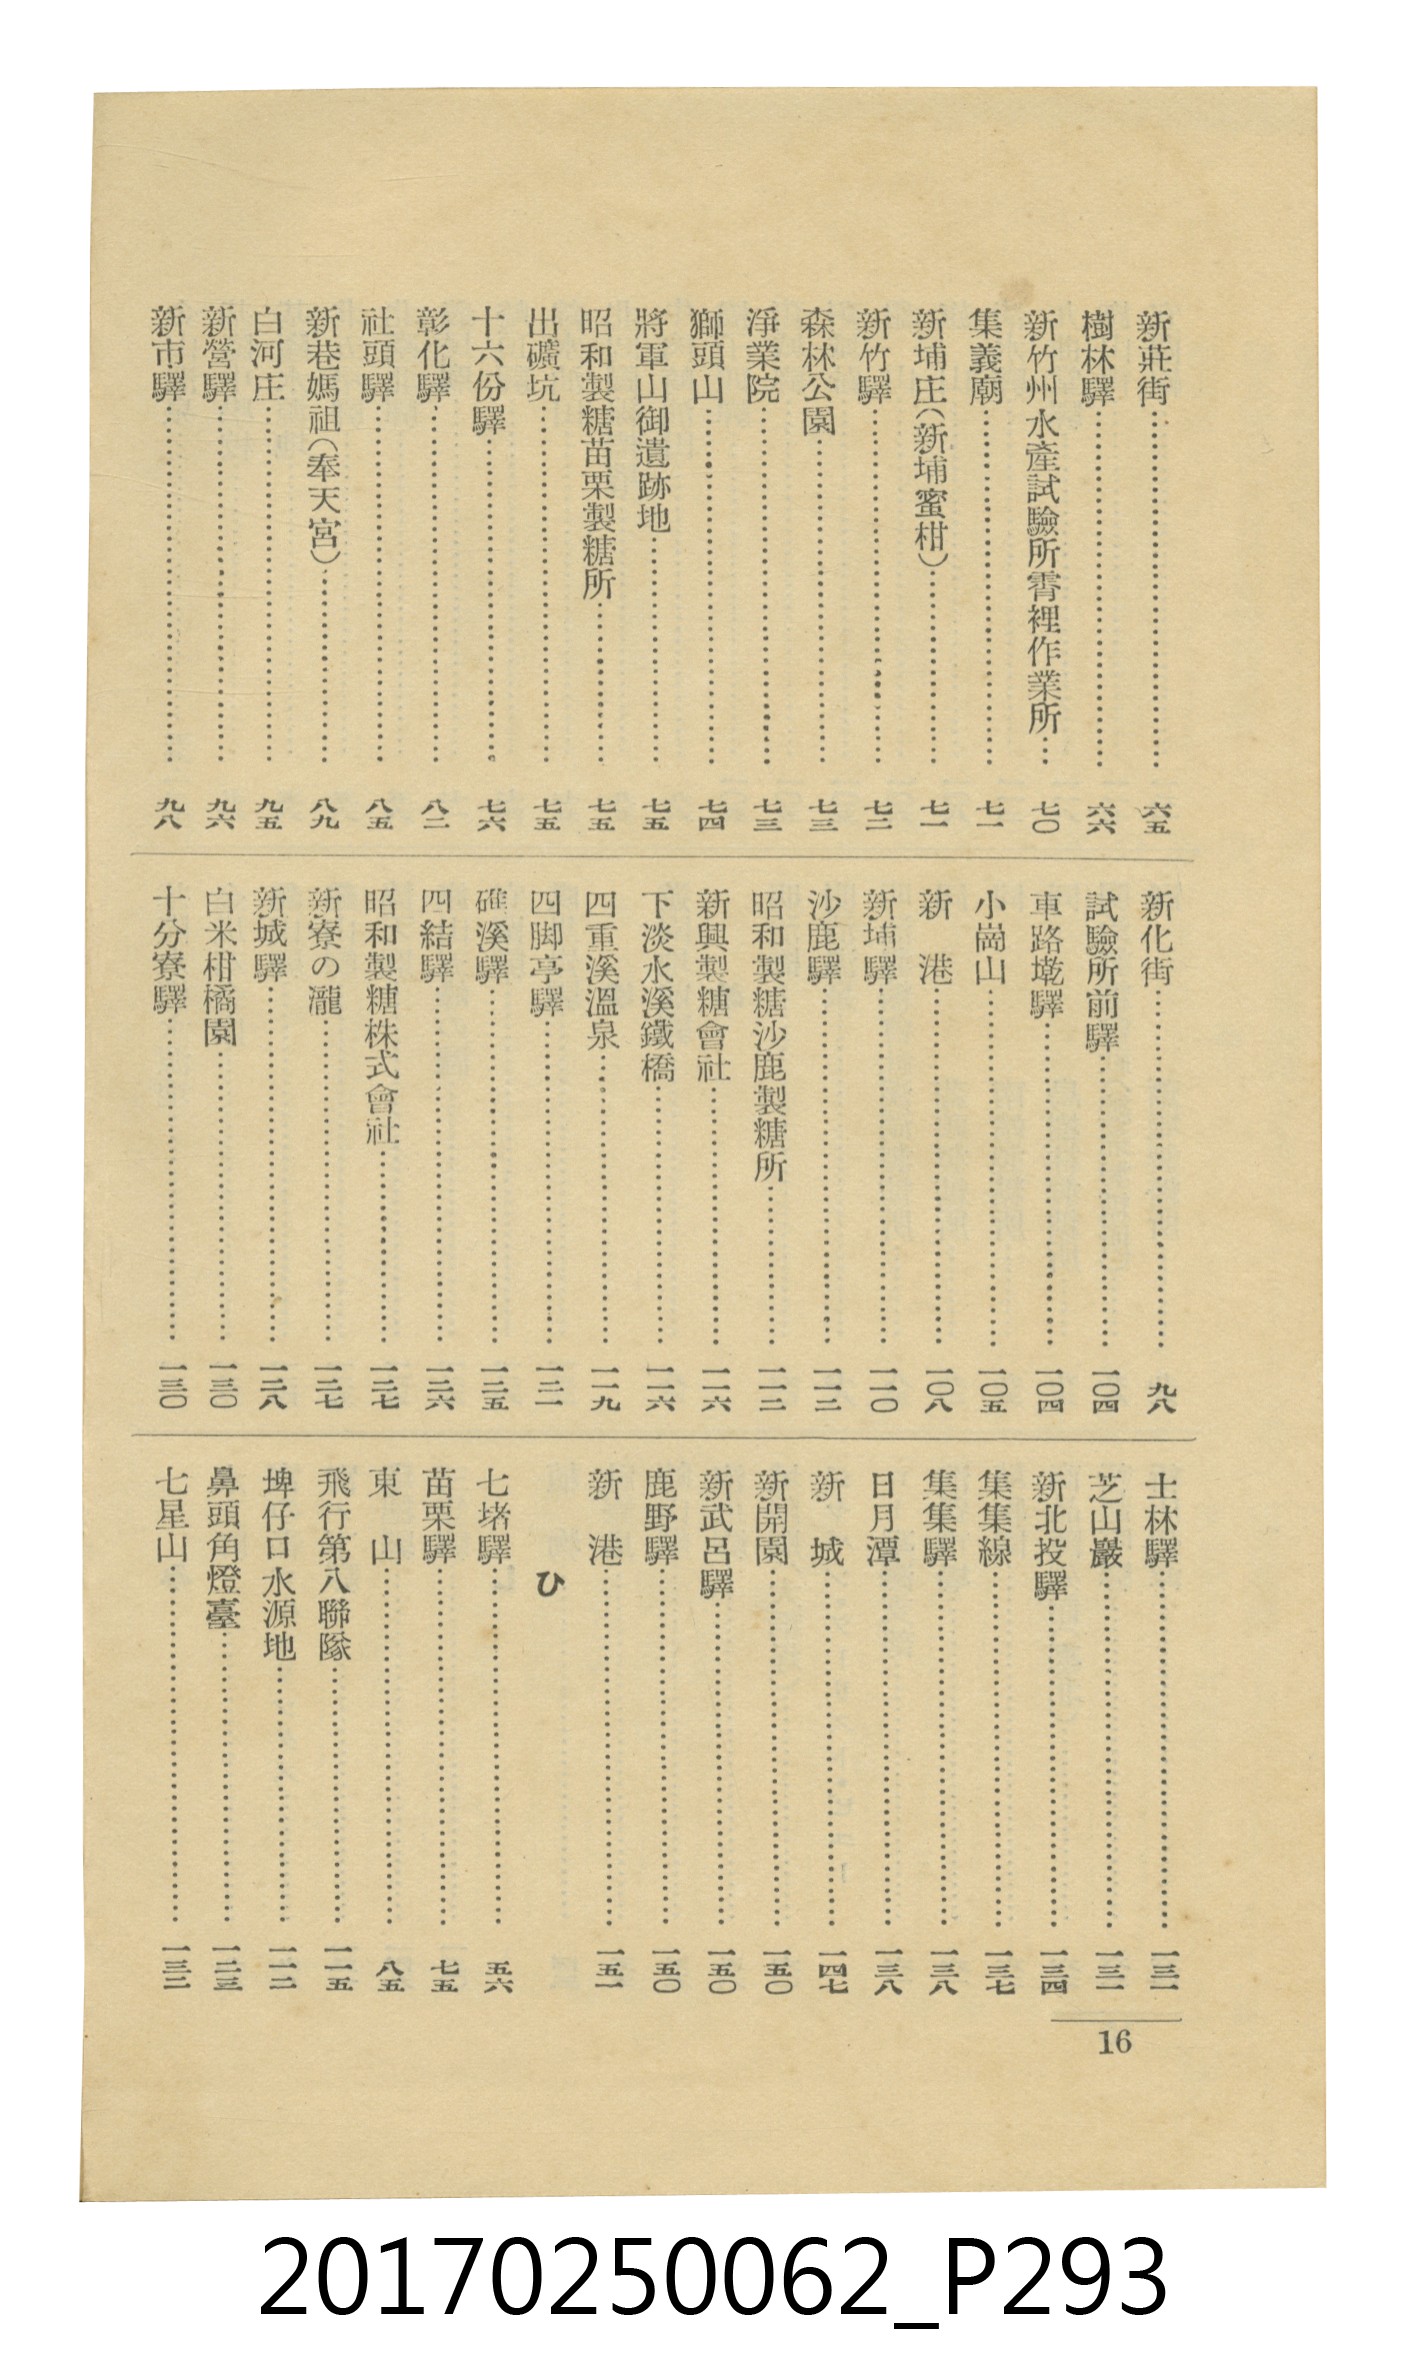 新莊街……六五
樹林驛……六六
新竹州水產試驗所霄裡作業所…七〇
集義廟……七一
新埔庄（新埔蜜柑）……七一
新竹驛……七二
森林公園……七三
淨業院……七三
獅頭山……七四
將軍山御遺跡地……七五
昭和製糖苗栗製糖所……七五
出礦坑……七五
十六份驛……七六
彰化驛……八二
社頭驛……八五
新巷媽祖（奉天宮）……八九
白河庄……九五
新營驛……九六
新市驛……九八
新化街……九八
試驗所前驛……一〇四
車路墘驛……一〇四
小崗山……一〇五
新　港……一〇八
新埔驛……一一〇
沙鹿驛……一一二
昭和製糖沙鹿製糖所……一一二
新興製糖會社……一一六
下淡水溪鐵橋……一一六
四重溪溫泉……一一九
四脚亭驛……一二一
礁溪驛……一二五
四結驛……一二六
昭和製糖株式會社……一二七
新寮の瀧……一二七
新城驛……一二八
白米柑橘園……一三〇
十分寮驛……一三〇
士林驛……一三一
芝山巖……一三一
新北投驛……一三四
集集線……一三七
集集驛……一三八
日月潭……一三八
新　城……一四七
新開園……一五〇
新武呂驛……一五〇
鹿野驛……一五〇
新　港……一五一
ひ
七堵驛……五六
苗栗驛……七五
東　山……八五
飛行第八聯隊……一一五
埤仔口水源地……一一二
鼻頭角燈臺……一二三
七星山……一三二
16
20170250062_P293